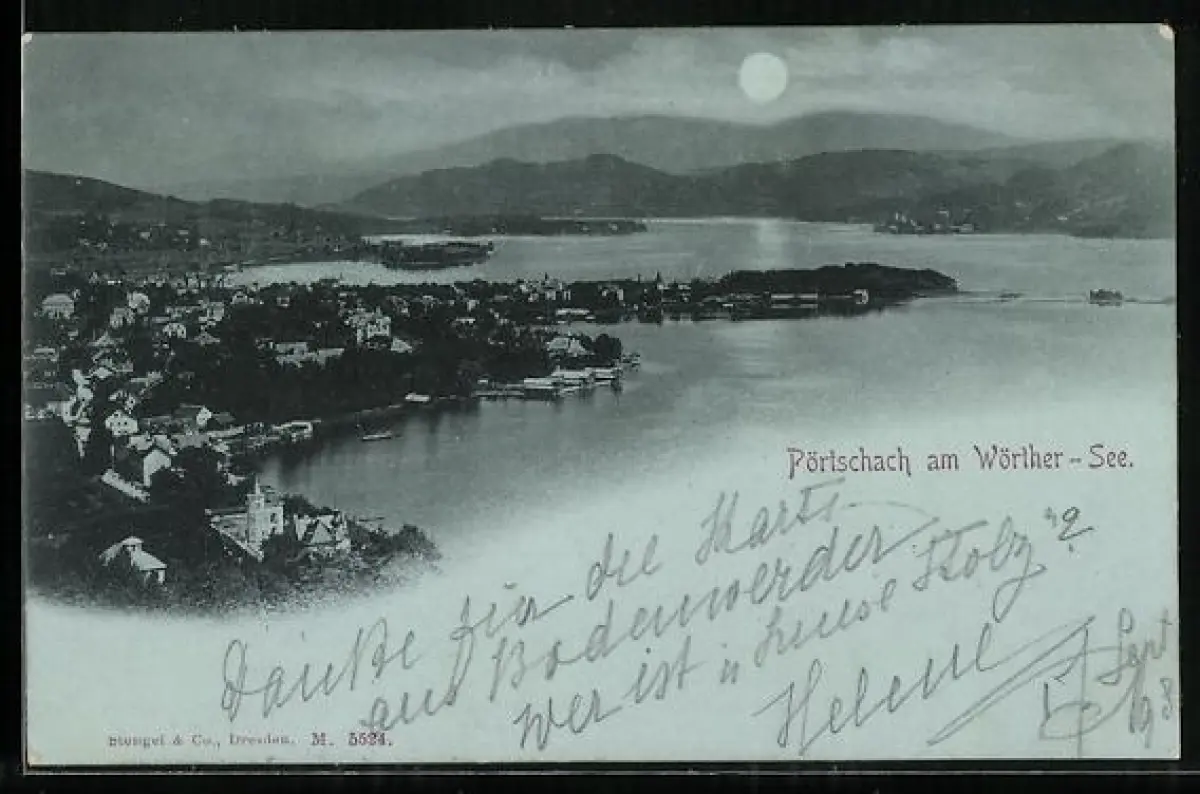 Pörtschach am Wörther-See.
Danke für die Karte
aus Bodenwerder
wer ist "Luise Stolz"?
Helene
Sept
98
Stengel & Co., Dresden. M. 5524.